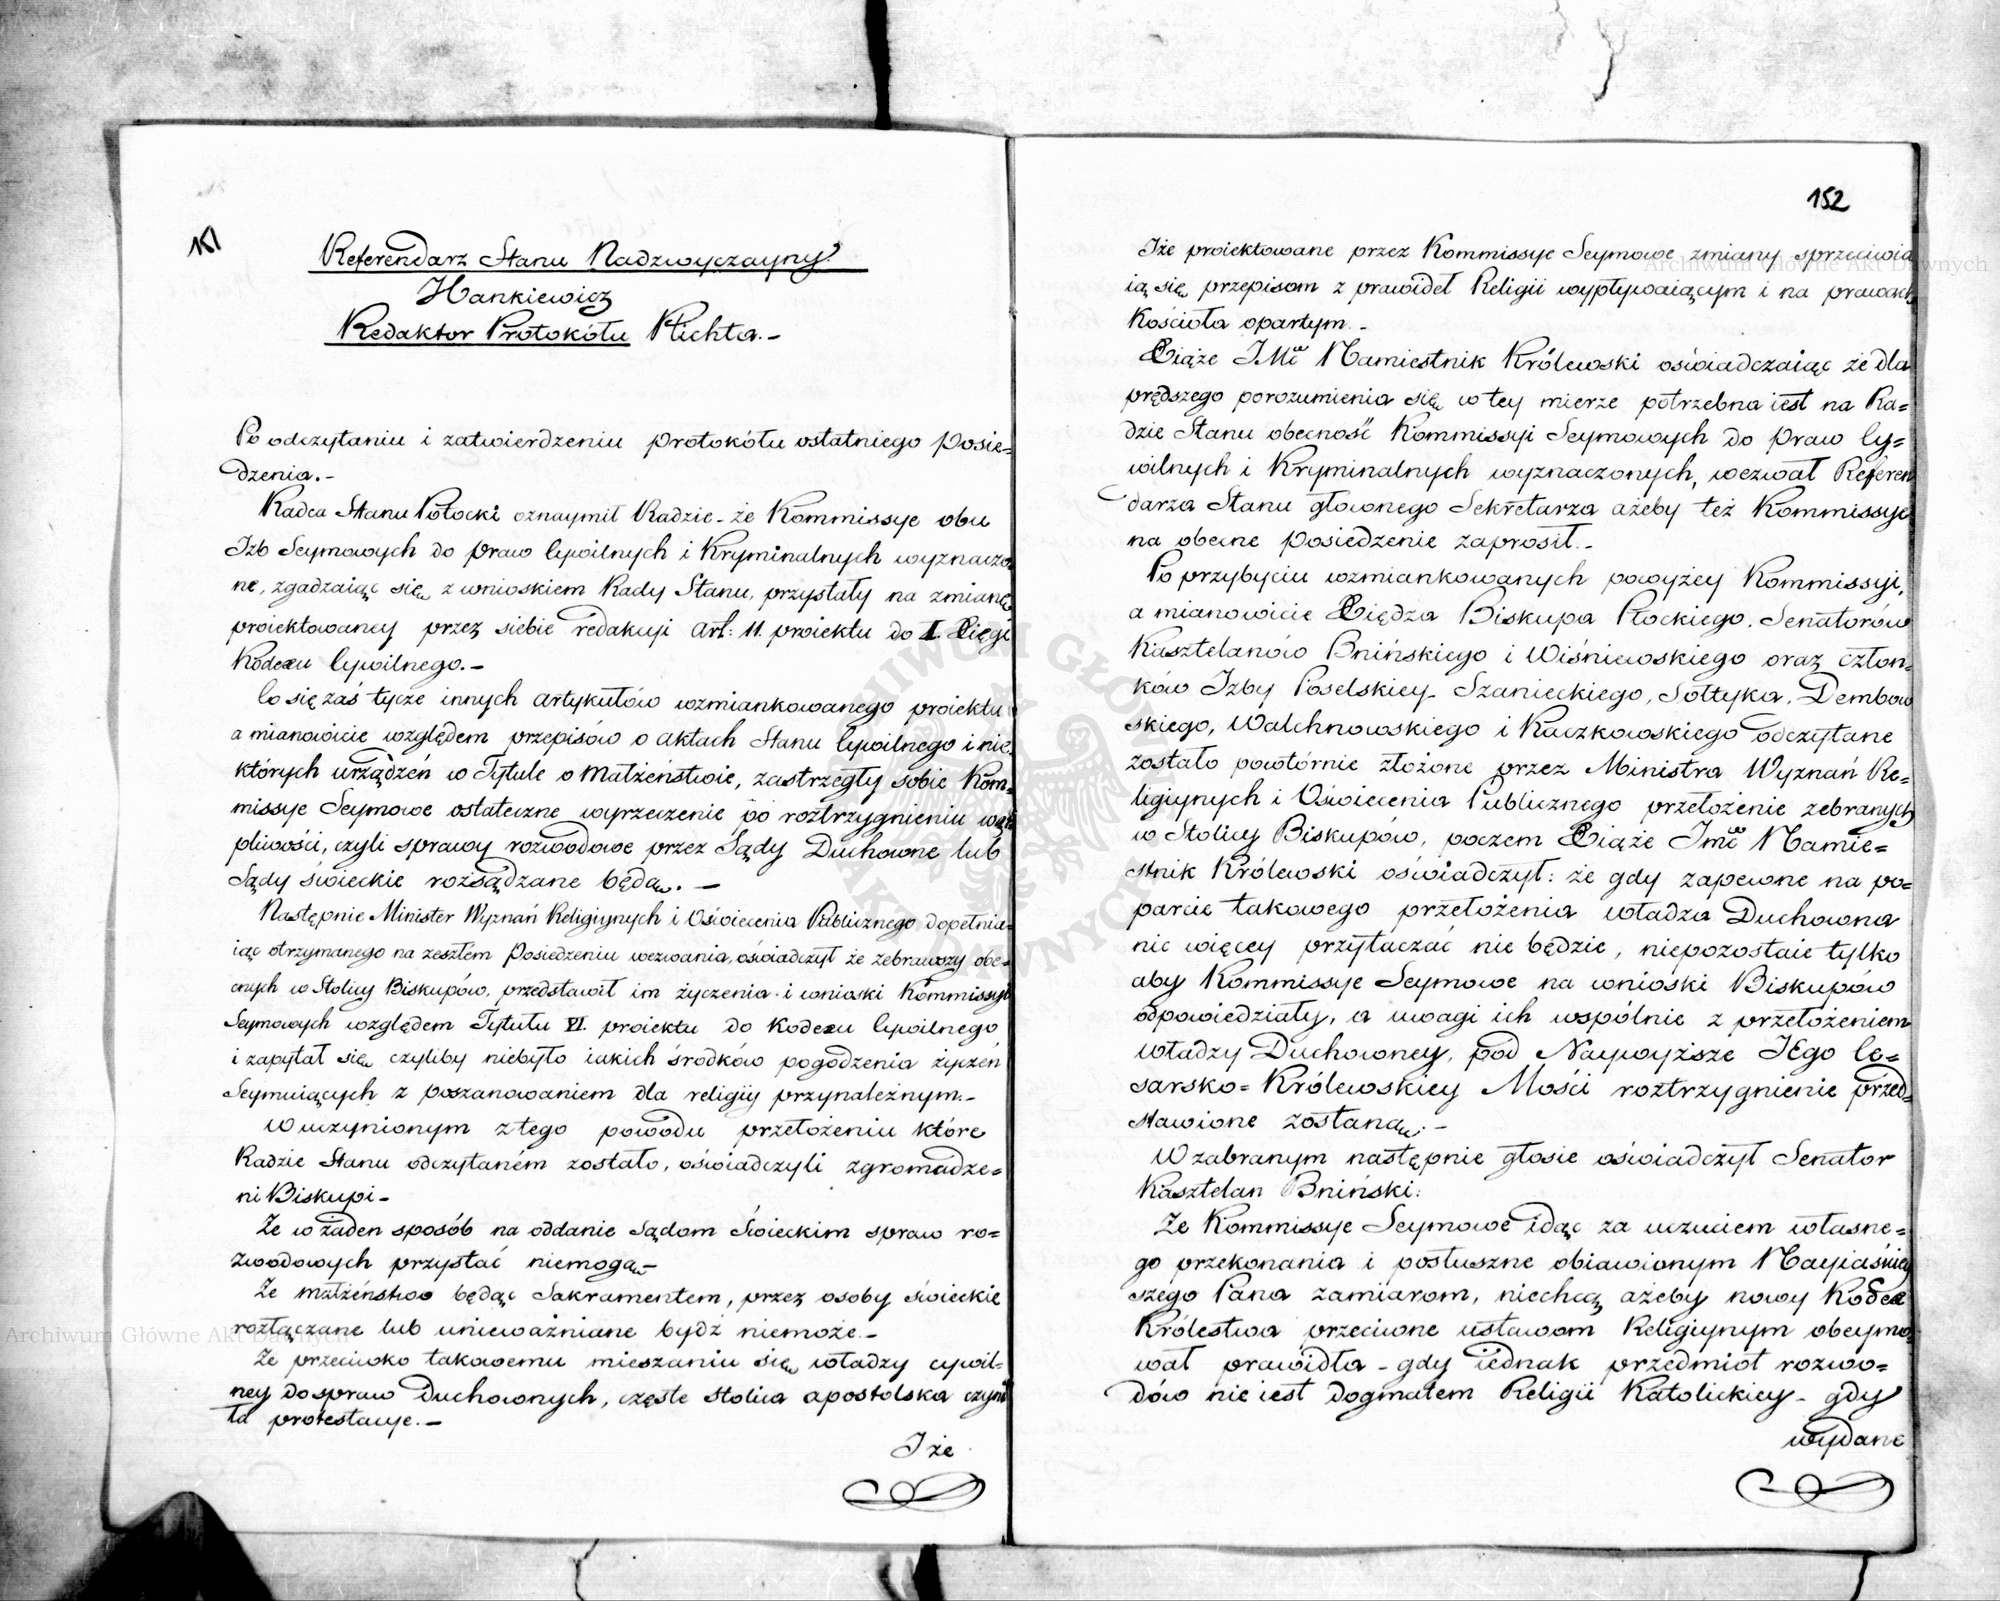 151
Referendarz Stanu Nadzwyczayny
Hankiewicz
Redaktor Protokółu Plichta.-
Po odczytaniu i zatwierdzeniu protokółu ostatniego posie=
dzenia.-
Radca Stanu Potocki oznaymił Radzie - że Kommissye obu
Izb Seymowych do praw Cywilnych i Kryminalnych wyznaczo
ne, zgadzaiąc się z wnioskiem Rady Stanu, przystały na zmianę
proiektowaney przez siebie redakcyi art: 11. proiektu do I. Xięgi
Kodexu Cywilnego.-
Co się zaś tycze innych artykułów wzmiankowanego proiektu
a mianowicie względem przepisów o aktach Stanu Cywilnego i nie
których urządzeń w Tytule o Małżeństwie, zastrzegły sobie Kom=
missye Seymowe ostateczne wyrzeczenie po roztrzygnieniu wąt
pliwości, czyli sprawy rozwodowe przez Sądy Duchowne lub
Sądy świeckie rozsądzane będą. -
Następnie Minister Wyznań Religiynych i Oświecenia Publicznego dopełnia=
iąc otrzymanego na zeszłem Posiedzeniu wezwania, oświadczył że zebrawszy obe=
cnych w Stolicy Biskupów, przedstawił im życzenia i wnioski Kommissyi
Seymowych względem Tytułu VI. proiektu do Kodexu Cywilnego
i zapytał się czyliby niebyło iakich środków pogodzenia życzeń
Seymuiących z poszanowaniem dla religiy przynależnym.-
W uczynionym z tego powodu przełożeniu które
Radzie Stanu odczytaném zostało, oświadczyli zgromadze=
ni Biskupi -
Że w żaden sposób na oddanie Sądom Świeckim spraw ro=
zwodowych przystać niemogą -
Że małżeństwo będąc Sakramentem, przez osoby świeckie
rozłączane lub unieważniane bydź niemoże.-
Że przeciwko takowemu mieszaniu się władzy cywil=
ney do spraw Duchownych, częste stolica apostolska czyni
ła protestacye.-
I że
152
Iże proiektowane przez Kommissye Seymowe zmiany sprzeciwia
ią się przepisom z prawideł Religii wypływaiącym i na prawach
Kościoła opartym.-
Xiąże JMć Namiestnik Królewski oświadczaiąc że dla
prędszego porozumienia się w tey mierze potrzebna iest na Ra=
dzie Stanu obecność Kommissyi Seymowych do praw Cy=
wilnych i Kryminalnych wyznaczonych, wezwał Referen
darza Stanu głównego Sekretarza ażeby też Kommissye
na obecne posiedzenie zaprosił.-
Po przybyciu wzmiankowanych powyżey Kommissyi,
a mianowicie Xiędza Biskupa Płockiego, Senatorów
Kasztelanów Bnińskiego i Wiśniewskiego oraz człon=
ków Izby Poselskiey - Szanieckiego, Sołtyka, Dembow
skiego, Walchnowskiego i Kaczkowskiego odczytane
zostało powtórnie złożone przez Ministra Wyznań Re=
ligiynych i Oświecenia Publicznego przełożenie zebranych
w Stolicy Biskupów, poczem Xiąże Jmć Namie=
stnik Królewski oświadczył: że gdy zapewne na po=
parcie takowego przełożenia władza Duchowna
nic więcey przytaczać nie będzie, niepozostaie tylko
aby Kommissye Seymowe na wnioski Biskupów
odpowiedziały, a uwagi ich wspólnie z przełożeniem
władzy Duchowney, pod Naywyższe JEgo Ce=
sarsko=Królewskiey Mości roztrzygnienie przed=
stawione zostaną.-
W zabranym następnie głosie oświadczył Senator
Kasztelan Bniński:
Że Kommissye Seymowe idąc za uczuciem własne=
go przekonania i posłuszne obiawionym Nayiaśniey
szego Pana zamiarom, niechcą ażeby nowy Kodex
Królestwa przeciwne ustawom Religiynym obeymo=
wał prawidła - gdy iednak przedmiot rozwo=
dów nie iest Dogmatem Religii Katolickiey - gdy
wydane
Archiwum Główne Akt Dawnych
Archiwum Główne Akt Dawnych
ARCHIWUM GŁÓWNE AKT DAWNYCH